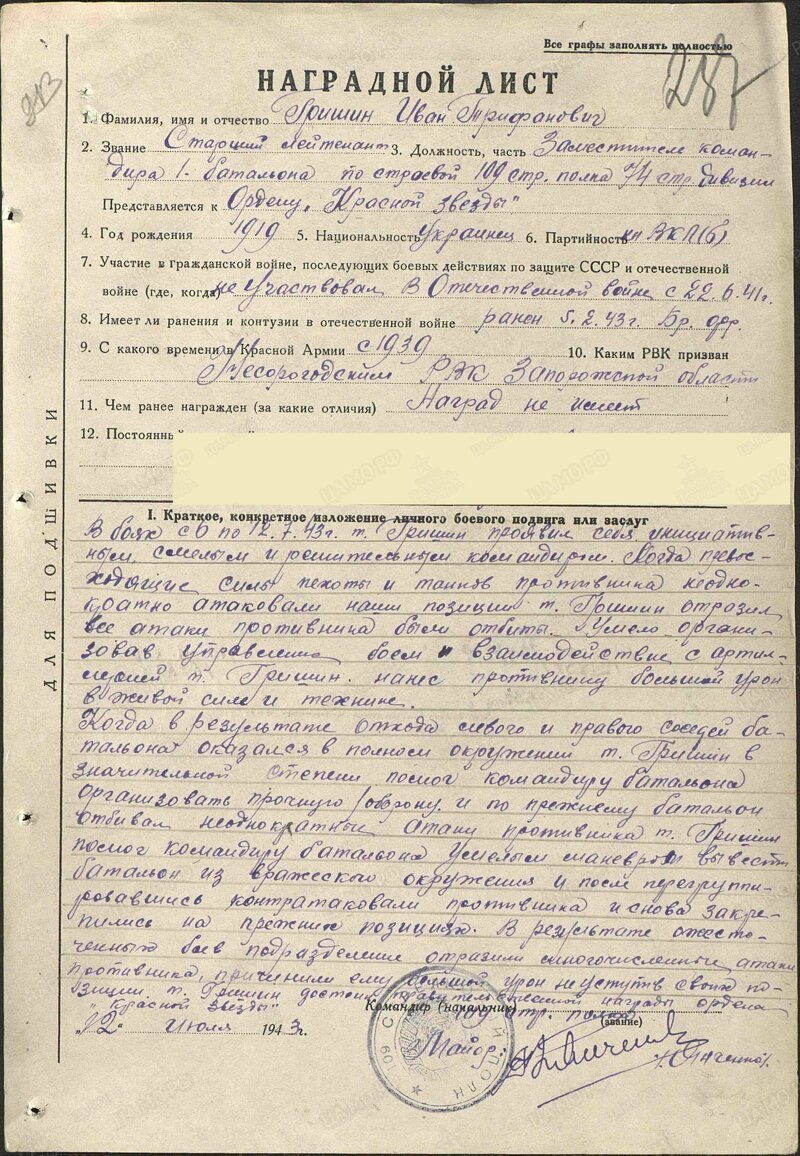 Все графы заполнять полностью
213
287
НАГРАДНОЙ ЛИСТ
1. Фамилия, имя и отчество Гришин Иван Трифанович
2. Звание Старший лейтенант 3. Должность, часть Заместителе коман-
дира 1-батальона по строевой 109 стр. полка 74 стр. дивизии
Представляется к Ордену "Красной звезды"
4. Год рождения 1919 5. Национальность Украинец 6. Партийность кп ВКП(б)
7. Участие в гражданской войне, последующих боевых действиях по защите СССР и отечественной
войне (где, когда) не участвовал В Отечественной войне с 22.6.41г.
8. Имеет ли ранения и контузии в отечественной войне ранен 5.2.43г. Бр. фр.
9. С какого времени в Красной Армии с 1939 10. Каким РВК призван
РВК Запорожской области
11. Чем ранее награжден (за какие отличия) Наград не имеет
12. Постоянный
ДЛЯ ПОДШИВКИ
I. Краткое, конкретное изложение личного боевого подвига или заслуг
В боях с 6 по 12.7.43г. т. Гришин проявил себя инициатив-
ным, смелым и решительным командиром. Когда превос-
ходящие силы пехоты и танков противника неодно-
кратно атаковали наши позиции т. Гришин отразил
все атаки противника были отбиты. Умело органи-
зовав управление боем и взаимодействие с артил-
лерией т. Гришин нанес противнику большой урон
в живой силе и технике.
Когда в результате отхода левого и правого соседей ба-
тальона оказался в полном окружении т. Гришин в
значительной степени помог командиру батальона
организовать прочную оборону и по прежнему батальон
отбивал неоднократные атаки противника т. Гришин
помог командиру батальона умелым маневром вывести
батальон из вражеского окружения и после перегруппи-
ровавшись контратаковали противника и снова закре-
пились на прежних позициях. В результате ожесто-
ченных боев подразделение отразили многочисленные атаки
противника, причинили ему большой урон не уступив своих по-
зиции. т. Гришин достоин правительственной награды ордена
"Красной звезды"
Командир (начальник) 109 стр. полка
(звание)
"12" июля 1943г.
Майор